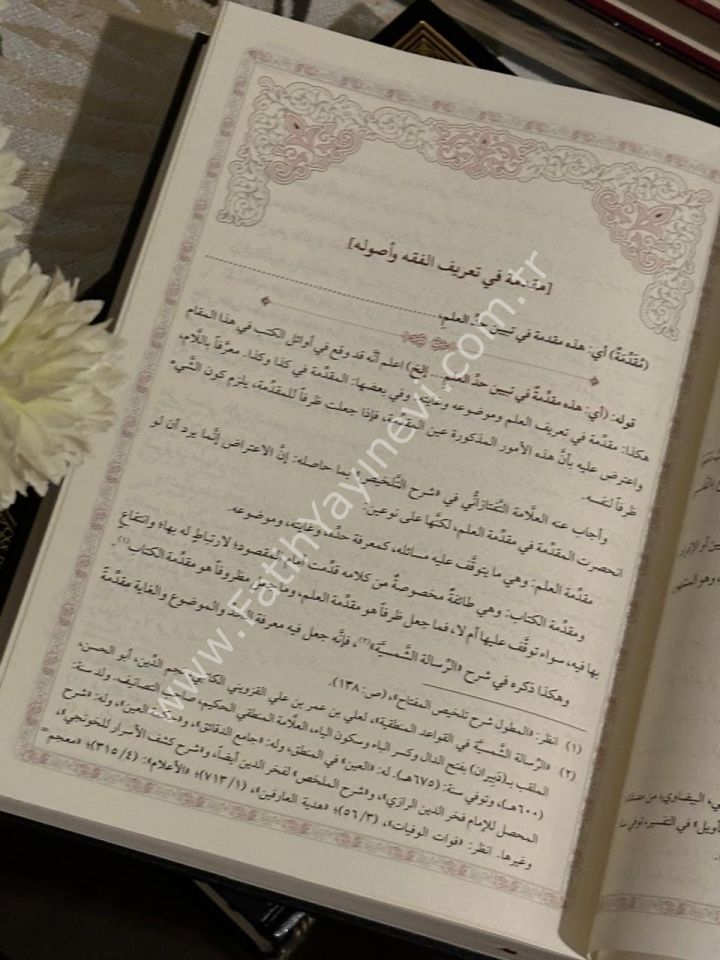 [مقدمة في تعريف الفقه وأصوله]
(مُقَدِّمَةٌ) أي: هذه مقدمة في تبيين حدِّ العلمِ،
قوله: (أي: هذه مقدِّمةٌ في تبيين حدِّ العلم ... إلخ) اعلم أنَّه قد وقع في أوائل الكتب في هذا المقام
هكذا: مقدِّمة في تعريف العلم وموضوعه وغايته، وفي بعضها: المقدِّمة في كذا وكذا. معرَّفاً باللَّام،
واعترض عليه بأنَّ هذه الأمور المذكورة عين المقدِّمة، فإذا جعلت ظرفاً للمقدِّمة، يلزم كون الشَّيء
ظرفاً لنفسه.
وأجاب عنه العلَّامة التَّفتازانُّي في «شرح التَّلخيص» بما حاصله: إنَّ الاعتراض إنَّما يرد أن لو
انحصرت المقدِّمة في مقدِّمة العلم، لكنَّها على نوعين:
مقدِّمة العلم: وهي ما يتوقَّف عليه مسائله، كمعرفة حدِّه، وغايته، وموضوعه.
ومقدِّمة الكتاب: وهي طائفةٌ مخصوصةٌ من كلامه قدِّمت أمام المقصود؛ لارتباطٍ له بها؛ وانتفاعٍ
بها فيه، سواء توقَّف عليها أم لا، فما جعل ظرفاً هو مقدِّمة العلم، وما جعل مظروفاً هو مقدِّمة الكتاب(١).
وهكذا ذكره في شرح «الرِّسالة الشَّمسيَّة»(٢)، فإنَّه جعل فيه معرفة الحد والموضوع والغاية مقدِّمةً
(١) انظر: «المطول شرح تلخيص المفتاح»، (ص: ١٣٨).
(٢) «الرِّسالة الشَّمسيَّة في القواعد المنطقية»، لعلي بن عمر بن علي القزويني الكاتبي نجم الدِّين، أبو الحسن،
الملقب بـ(دَبِيران) بفتح الدال وكسر الباء وسكون الياء، العلَّامة المنطقي الحكيم، صاحب التصانيف. ولد سنة:
(٦٠٠هـ)، وتوفي سنة: (٦٧٥هـ). له: «العين» في المنطق، وله: «جامع الدقائق»، و«حكمة العين»، وله: «شرح
المحصل للإمام فخر الدين الرازي»، و«شرح الملخص» لفخر الدين أيضاً، و«شرح كشف الأسرار للخونجي»،
وغيرها. انظر: «فوات الوفيات»، (٥٦/٣)؛ «هدية العارفين»، (٧١٣/١)؛ «الأعلام»: (٣١٥/٤)؛ «معجم =
www.FatihYayinevi.com.tr